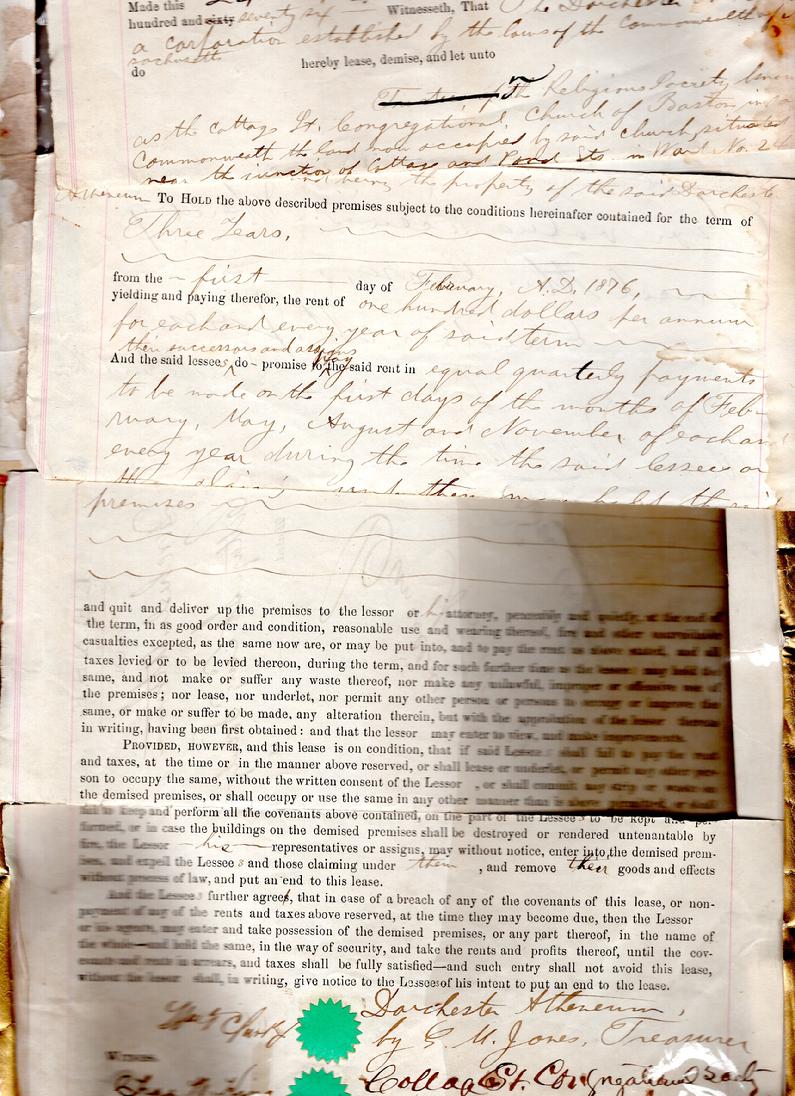 Made this
hundred and sixty seventy six Witnesseth, That The Dorchester
a corporation established by the laws of the Commonwealth of
do hereby lease, demise, and let unto
The Religious Society
as the Cottage St. Congregational Church of Boston in
Commonwealth the land now occupied by said church, situated
near the junction of Cottage and Pond Sts. in Ward No. 24
and being the property of the said Dorchester
Atheneum To HOLD the above described premises subject to the conditions hereinafter contained for the term of
Three Years,
from the first day of February, A.D. 1876,
yielding and paying therefor, the rent of one hundred dollars per annum
for each and every year of said term
their successors and assigns
And the said lessees do promise to pay the said rent in equal quarterly payments
to be made on the first days of the months of Feb-
ruary, May, August and November of each and
every year during the time the said lessees or
premises
and quit and deliver up the premises to the lessor or his attorney, peaceably and quietly, at the end of
the term, in as good order and condition, reasonable use and wearing thereof, fire and other unavoidable
casualties excepted, as the same now are, or may be put into, and to pay the rent as above stated, and all
taxes levied or to be levied thereon, during the term, and for such further time as the
same, and not make or suffer any waste thereof, nor make any unlawful, improper or offensive use of
the premises; nor lease, nor underlet, nor permit any other person or persons to occupy or improve the
same, or make or suffer to be made, any alteration therein, but with the approbation of the lessor
in writing, having been first obtained: and that the lessor may enter to view, and make improvements.
PROVIDED, HOWEVER, and this lease is on condition, that if said Lessees shall fail to pay
and taxes, at the time or in the manner above reserved, or shall lease or underlet, or permit any other per-
son to occupy the same, without the written consent of the Lessor , or shall commit any strip or waste
the demised premises, or shall occupy or use the same in any other manner than is
fail to keep and perform all the covenants above contained, on the part of the Lessees to be kept and per-
formed, or in case the buildings on the demised premises shall be destroyed or rendered untenantable by
fire, the Lessor his representatives or assigns, may without notice, enter into the demised prem-
ises, and expell the Lessees and those claiming under them , and remove their goods and effects
without process of law, and put an end to this lease.
And the Lessees further agree, that in case of a breach of any of the covenants of this lease, or non-
payment of any of the rents and taxes above reserved, at the time they may become due, then the Lessor
or his agents, may enter and take possession of the demised premises, or any part thereof, in the name of
the whole—and hold the same, in the way of security, and take the rents and profits thereof, until the cov-
enants and rents in arrears, and taxes shall be fully satisfied—and such entry shall not avoid this lease,
without the lessor shall, in writing, give notice to the Lessees of his intent to put an end to the lease.
Dorchester Atheneum,
by Jones, Treasurer
WITNESS
Cottage St. Congregational Society